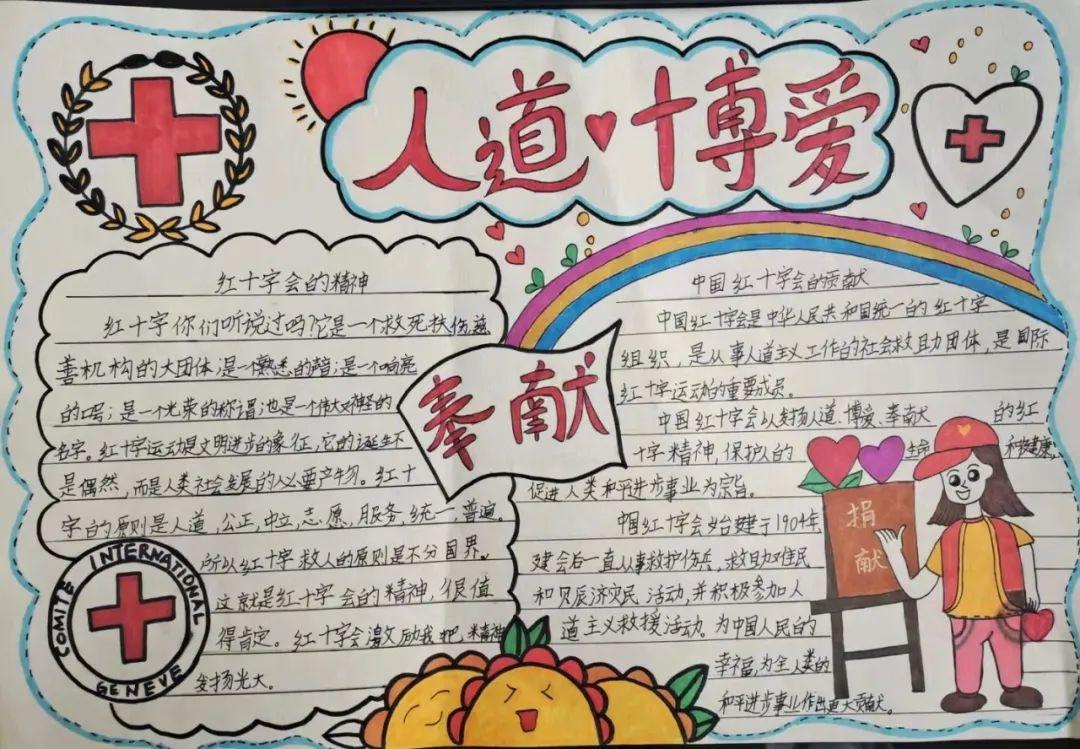 人道·博爱
红十字会的精神
红十字你们听说过吗?它是一个救死扶伤慈
善机构的大团体;是一熟悉的声音;是一个响亮
的口号;是一个光荣的称谓;也是一个伟大神圣的
名字。红十字运动是文明进步的象征,它的诞生不
是偶然,而是人类社会发展的必要产物。红十
字的原则是人道,公正,中立,志愿,服务,统一,普遍。
所以红十字救人的原则是不分国界。
这就是红十字会的精神,很值
得肯定。红十字会激励我把精神
发扬光大。
COMITE INTERNATIONAL GENEVE
奉献
中国红十字会的贡献
中国红十字会是中华人民共和国统一的红十字
组织,是从事人道主义工作的社会救助团体,是国际
红十字运动的重要成员。
中国红十字会以发扬人道、博爱、奉献的红
十字精神,保护人的生命和健康,
促进人类和平进步事业为宗旨。
中国红十字会始建于1904年
建会后一直从事救护伤兵、救助难民
和赈济灾民活动,并积极参加人
道主义救援活动。为中国人民的
幸福,为全人类的
和平进步事业作出更大贡献。
捐
献